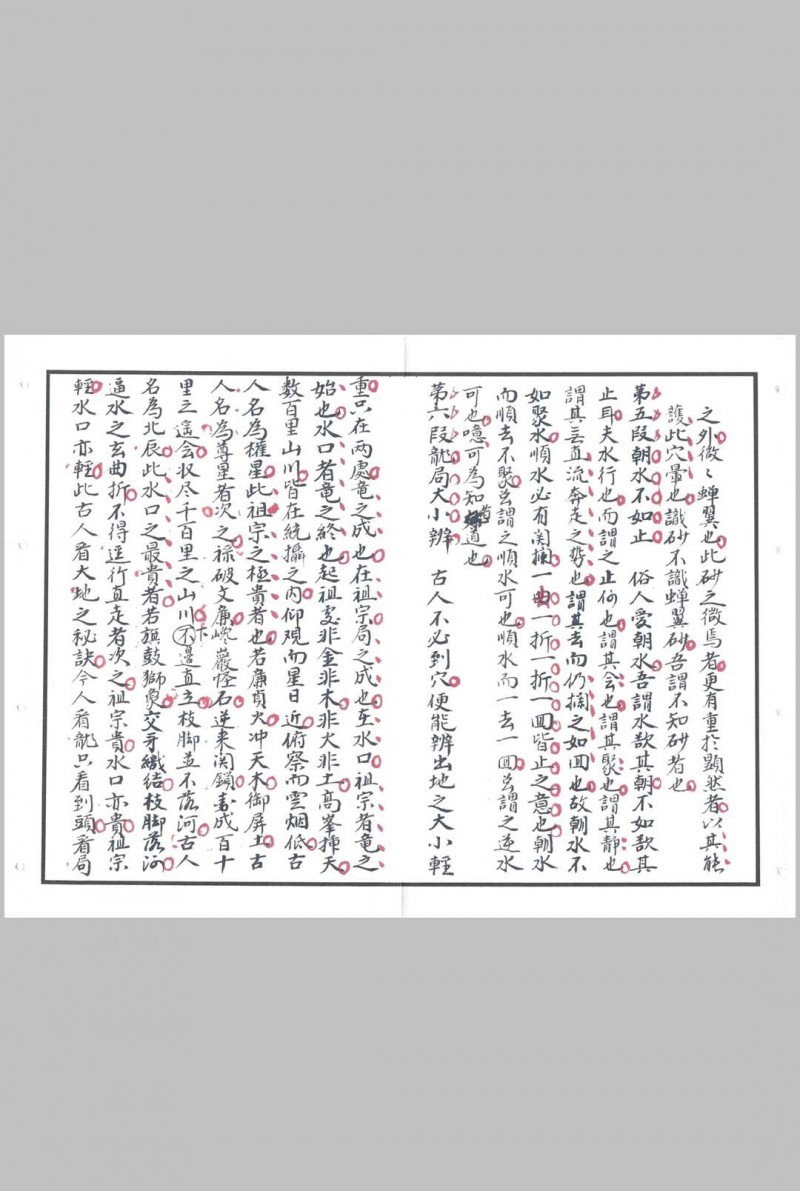 之外微〻蟬翼也此砂之微焉者更有重於顯然者以其能
護此穴暈也識砂不識蟬翼砂吾謂不知砂者也
第五段朝水不如止　俗人愛朝水吾謂水欲其朝不如欲其
止耳夫水行也而謂之止何也謂其会也謂其聚也謂其靜也
謂其無直流奔走之势也謂其去而仍掬之如回也故朝水不
如聚水順水必有関攔一曲一折一折一回皆止之意也朝水
而順去不聚吾謂之順水可也順水而一去一回吾謂之逆水
可也噫可為知者道也
第六段龍局大小辨　古人不必到穴便能辨出地之大小輕
重只在两處竜之成也在祖宗局之成也在水口祖宗者竜之
始也水口者竜之終也起祖處非金非木非火非土高峯揷天
数百里山川皆在統攝之内仰观而星日近俯察而雲烟低古
人名為權星此祖宗之極貴者也若廉貞火冲天木御屏土古
人名為尊星者次之禄破文廉巉巖怪石逆来関鎖畫成百十
里三這会収尽千百里之山川不卞邊直立枝脚並不落河古人
名為北辰此水口之最貴者若旗鼓獅象交牙織結枝脚落河
逼水之玄曲折不得逕行直走者次之祖宗貴水口亦貴祖宗
輕水口亦輕此古人看大地之秘訣今人看龍只看到頭看局